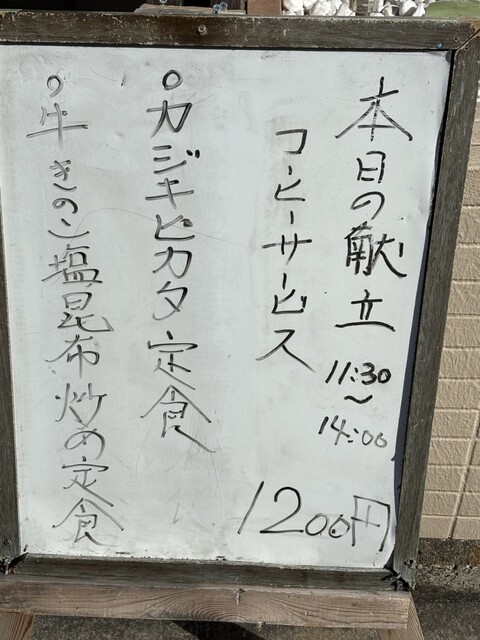 本日の献立
11:30
〜
14:00
コーヒーサービス
1200円
○カジキピカタ定食
○牛きのこ塩昆布炒め定食